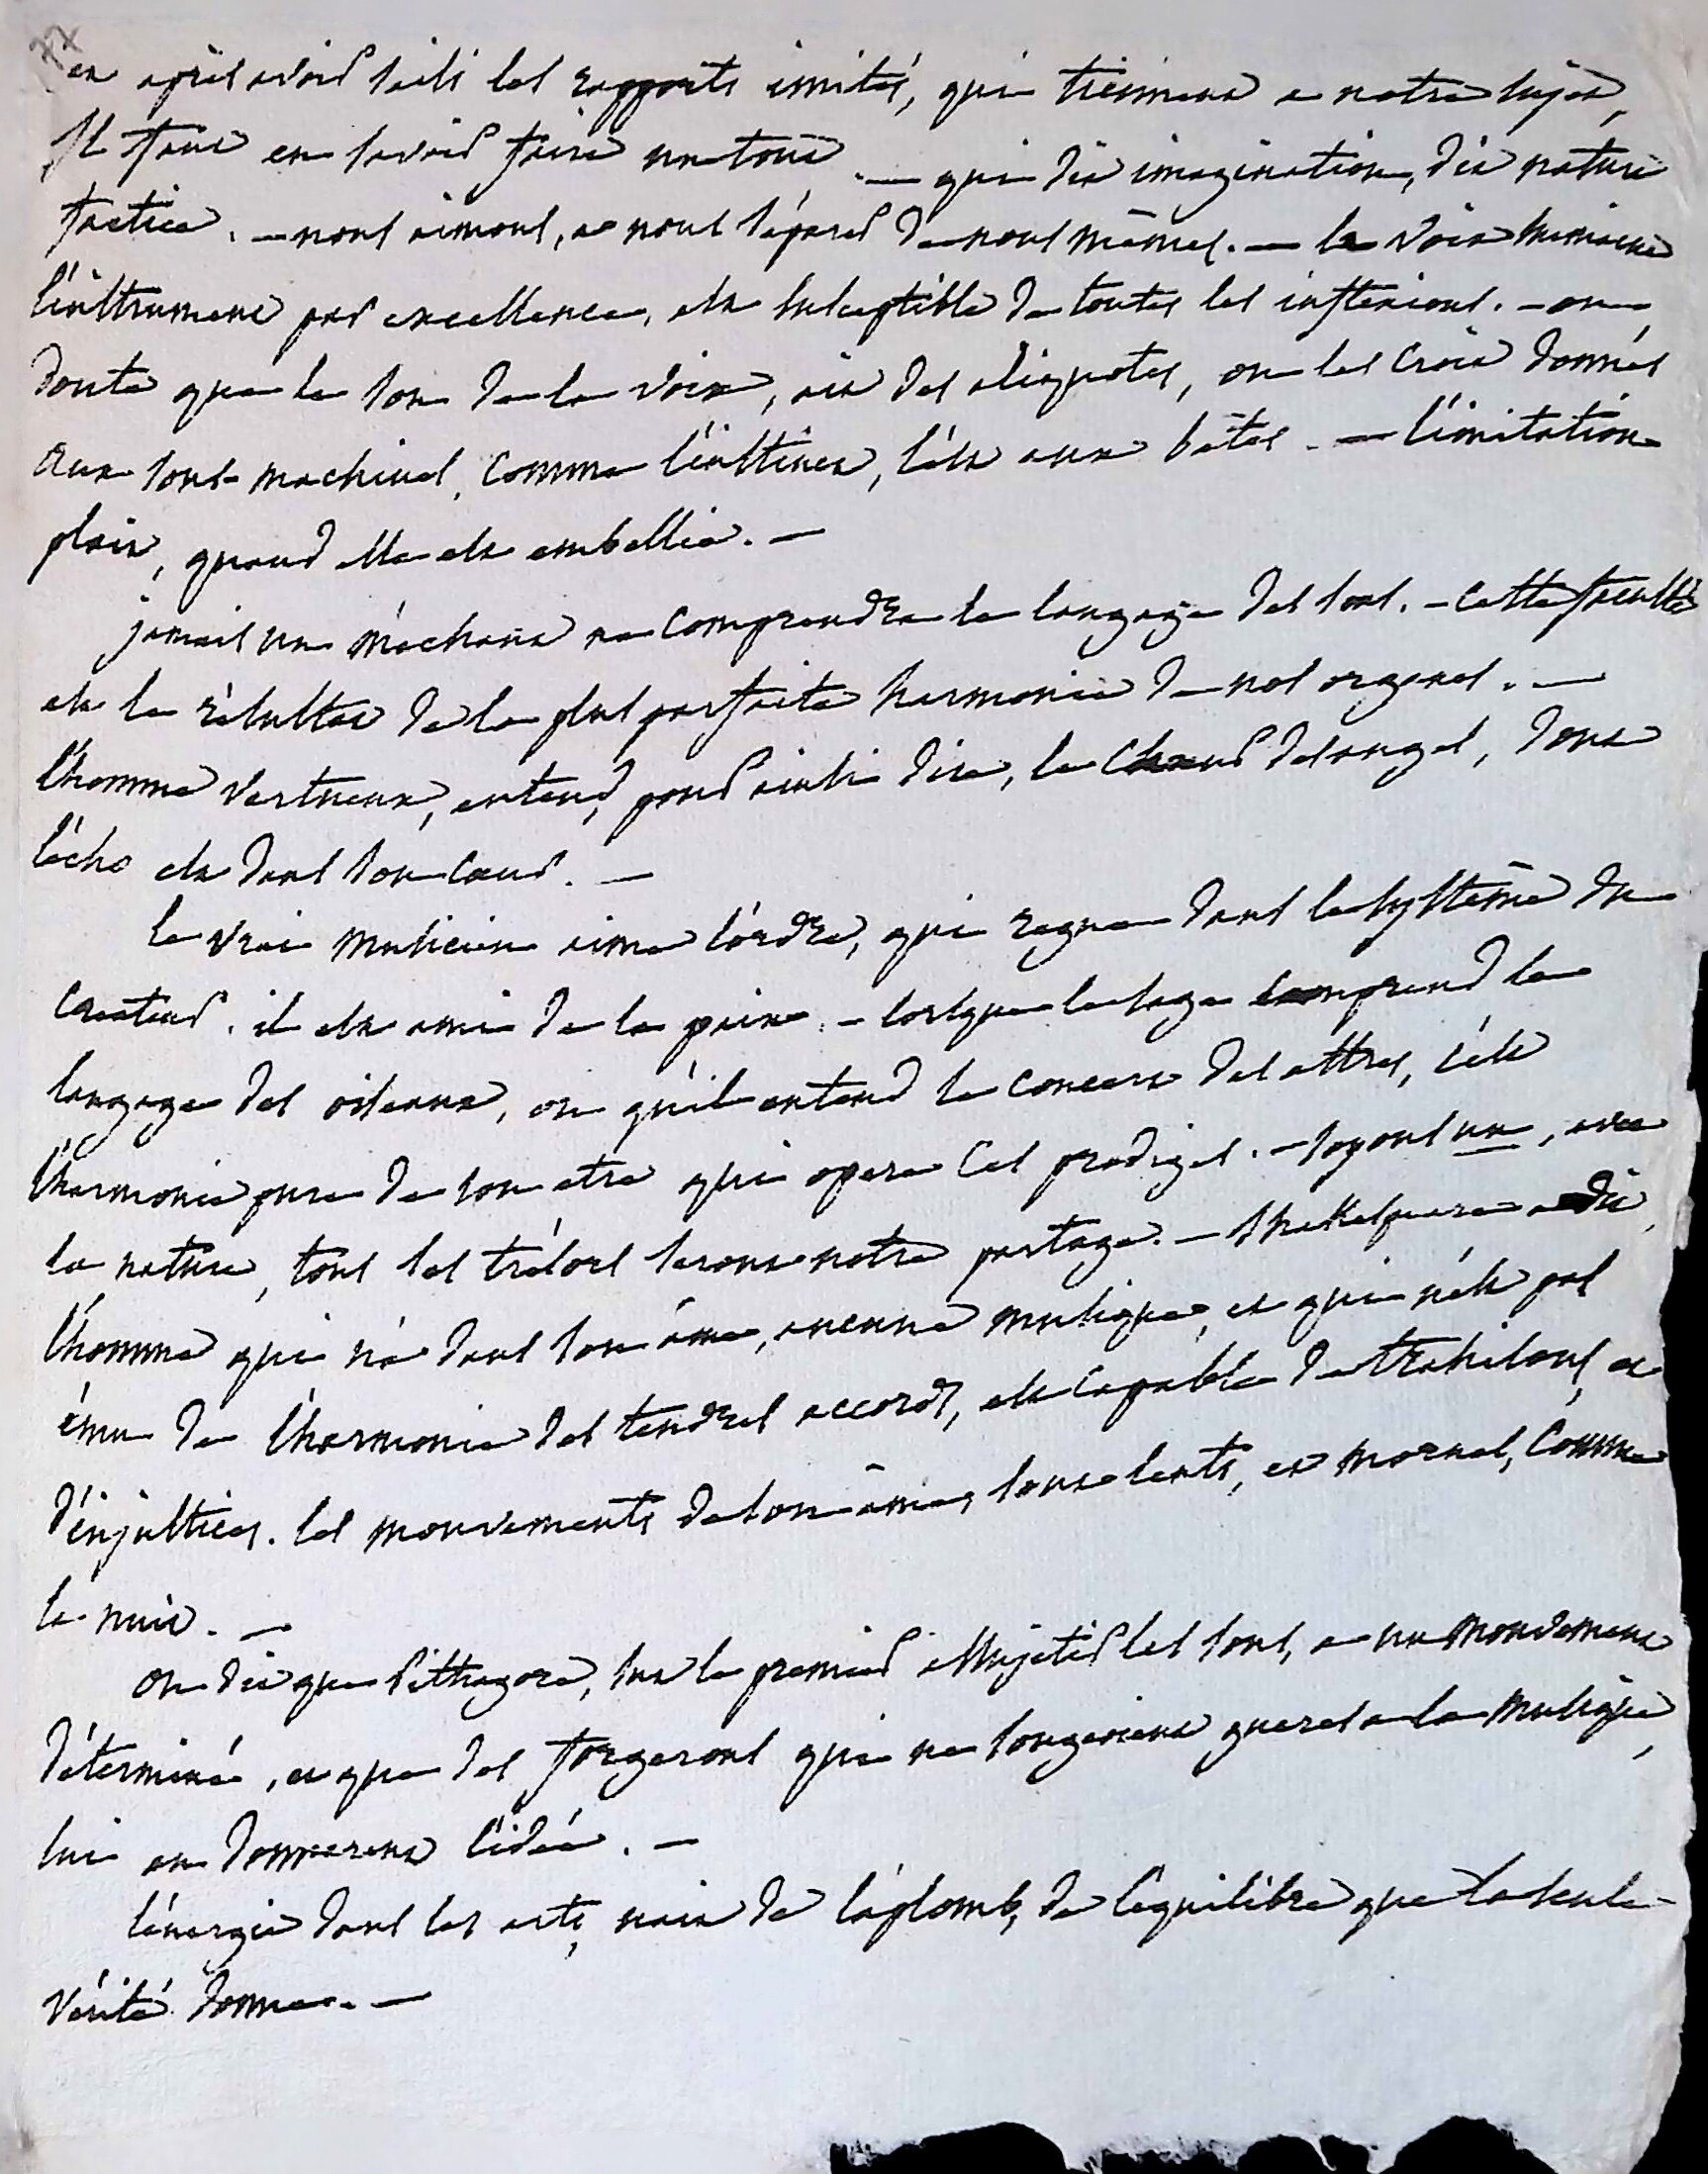 et après avoir saisi les rapports imités, qui tiennent a notre sujet,
Il faut en savoir faire un tout. — qui dit imagination, dit nature
factice. — nous aimons, a nous séparer de nous mêmes. — la voix humaine
l'instrument par excellence, est susceptible de toutes les inflexions. — on
doute que le son de la voix, ait des aliquotes, on les croit donnés
aux sons machinal, comme l'instinct, l'est aux bêtes. — l'imitation
plait, quand elle est embellie. —
jamais un méchant ne comprendra le langage des sons. — cette faculté
est le résultat de la plus parfaite harmonie de nos organes. —
l'homme vertueux, entend, pour ainsi dire, le chœur des anges, dont
l'écho est dans son cœur. —
le vrai musicien aime l'ordre, qui regne dans le système du
créateur. il est ami de la paix. — lorsque le sage comprend le
langage des oiseaux, ou qu'il entend le concert des astres, c'est
l'harmonie pure de son etre qui opere ces prodiges. — soyons un, avec
la nature, tous ses trésors seront notre partage. — Shakespeare a dit,
l'homme qui n'a dans son âme, aucune musique, et qui n'est pas
ému de l'harmonie des tendres accords, est capable de trahisons, et
d'injustices. les mouvements de son âme, sont lents, et mornes, comme
la nuit. —
on dit que Pithagore, sut le premier assujetir les sons, a un mouvement
déterminé, et que des forgerons qui ne songeaient gueres a la musique,
lui en donnerent l'idée. —
l'énergie dans les arts, nait de l'aplomb, de l'equilibre que la seule
vérité donne. —